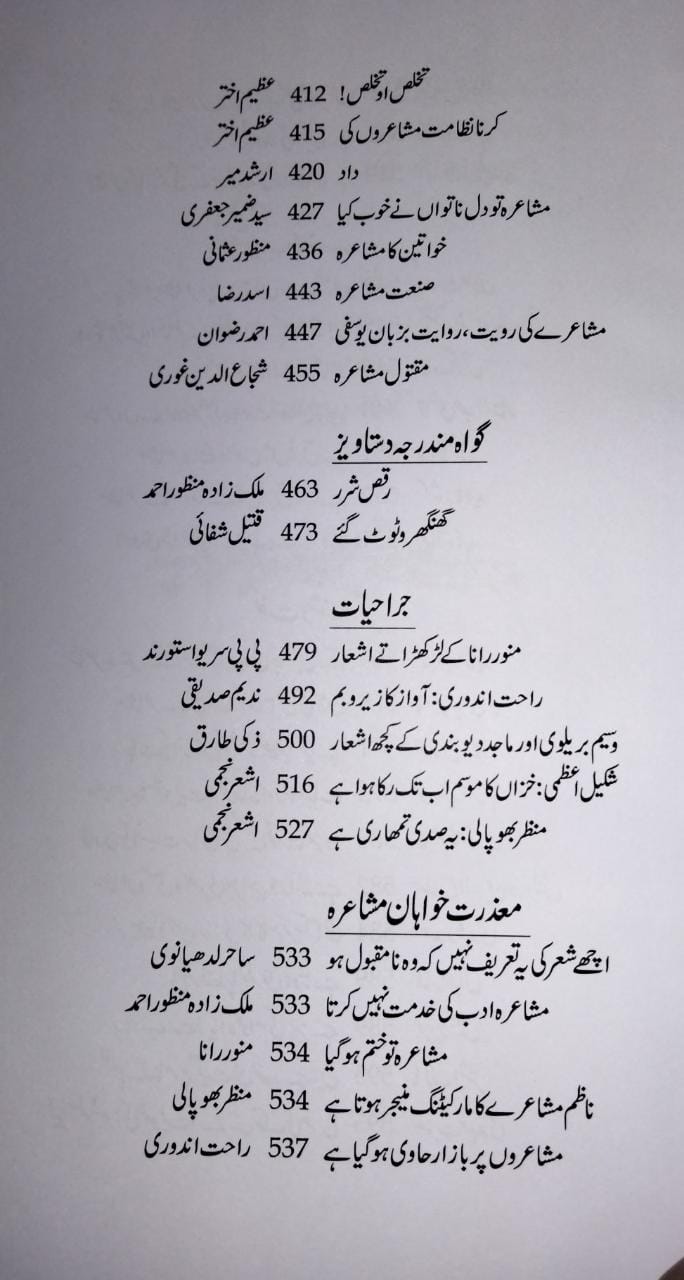 تخلص او تخلص! 412 عظیم اختر
کرنا نظامت مشاعروں کی 415 عظیم اختر
داد 420 ارشد میر
مشاعرہ تو دل ناتواں نے خوب کیا 427 سید ضمیر جعفری
خواتین کا مشاعرہ 436 منظور عثمانی
صنعت مشاعرہ 443 اسد رضا
مشاعرے کی رویت، روایت بزبان یوسفی 447 احمد رضوان
مقتول مشاعرہ 455 شجاع الدین غوری
گواہ مندرجہ دستاویز
رقص شرر 463 ملک زادہ منظور احمد
گھنگھرو ٹوٹ گئے 473 قتیل شفائی
جراحیات
منور رانا کے لڑکھڑاتے اشعار 479 پی پی سریواستو رند
راحت اندوری: آواز کا زیر و بم 492 ندیم صدیقی
وسیم بریلوی اور ماجد دیوبندی کے کچھ اشعار 500 ذکی طارق
شکیل اعظمی: خزاں کا موسم اب تک رکا ہوا ہے 516 اشعر نجمی
منظر بھوپالی: یہ صدی تمھاری ہے 527 اشعر نجمی
معذرت خواہان مشاعرہ
اچھے شعر کی یہ تعریف نہیں کہ وہ نا مقبول ہو 533 ساحر لدھیانوی
مشاعرہ ادب کی خدمت نہیں کرتا 533 ملک زادہ منظور احمد
مشاعرہ تو ختم ہو گیا 534 منور رانا
ناظم مشاعرے کا مارکیٹنگ منیجر ہوتا ہے 534 منظر بھوپالی
مشاعروں پر بازار حاوی ہو گیا ہے 537 راحت اندوری